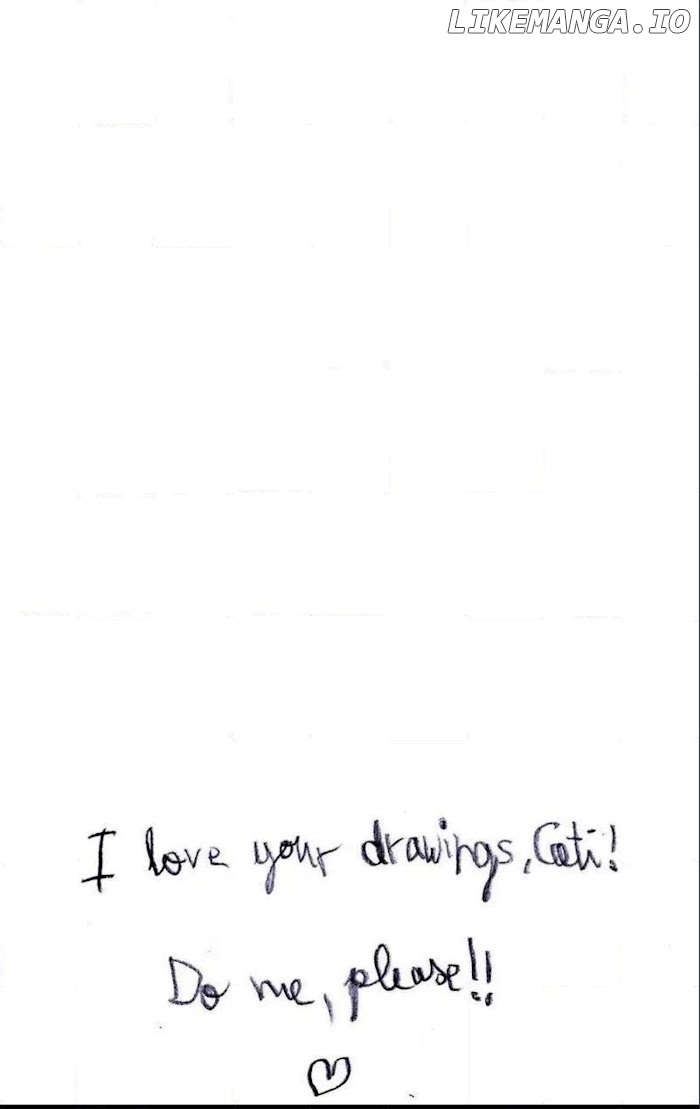 LIKEMANGA.IO
I love your drawings, Cati!
Do me, please!!
♡